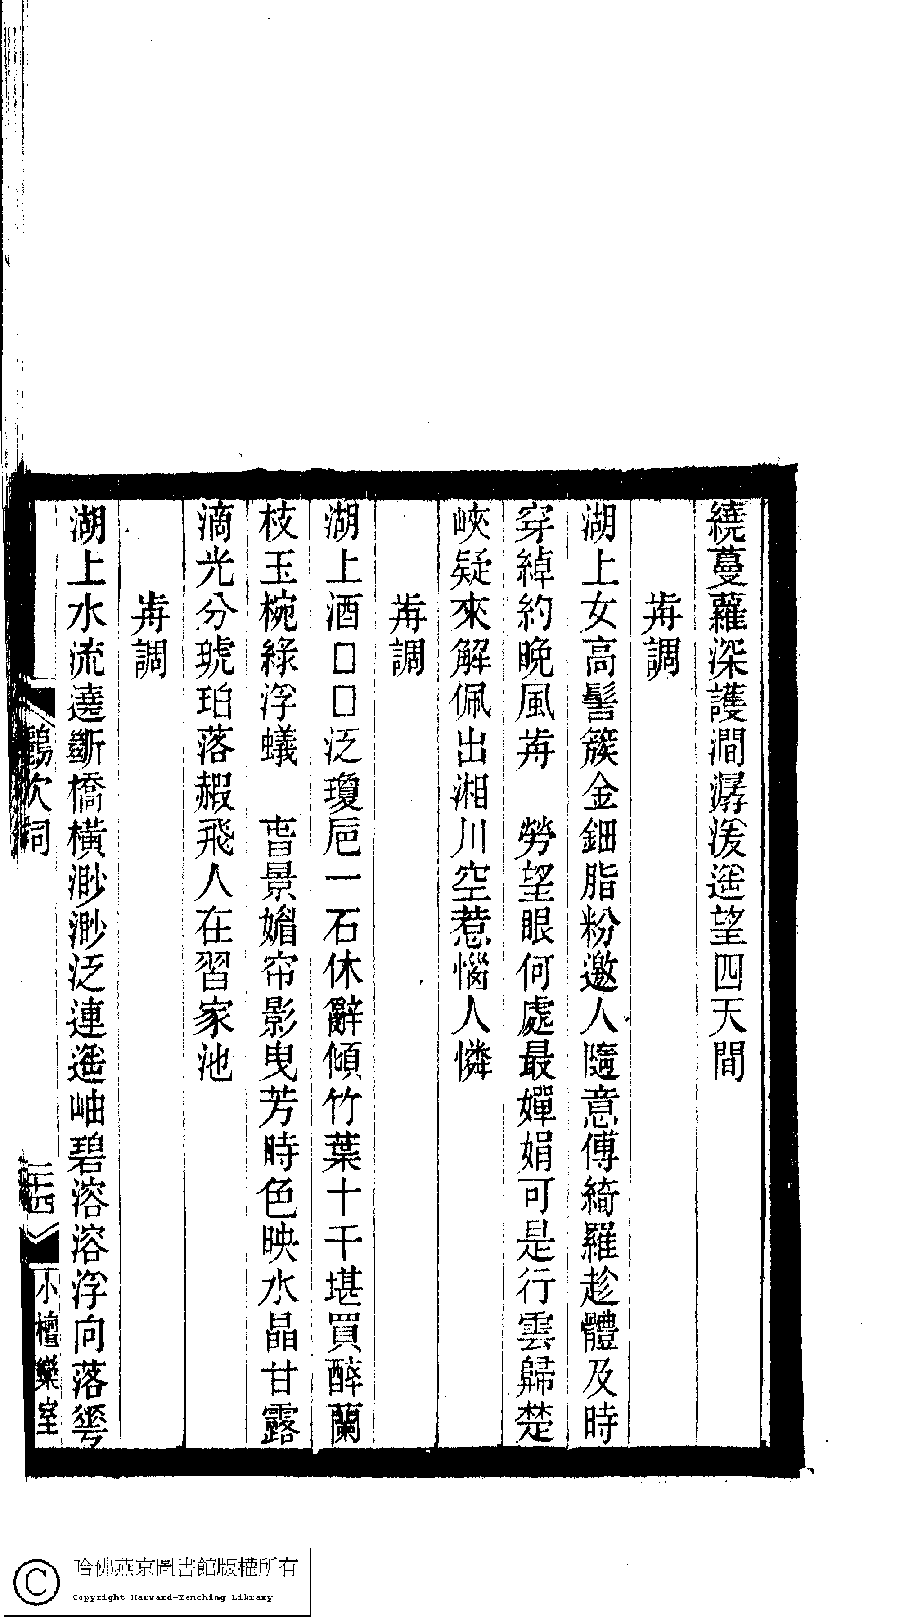 繞蔓蘿深護澗潺湲遙望四天間
歬調
湖上女高髻簇金鈿脂粉邀人隨意傅綺羅趁體及時
穿綽約晚風歬　勞望眼何處最嬋娟可是行雲歸楚
峽疑來解佩出湘川空惹惱人憐
歬調
湖上酒□□泛瓊卮一石休辭傾竹葉十千堪買醉蘭
枝玉椀綠浮蟻　旾景媚帘影曳芳時色映水晶甘露
滴光分琥珀落赮飛人在習家池
歬調
湖上水流遶斷橋橫渺渺泛連遙岫碧溶溶浮向落蕚
鷊次詞
二十四
小檀欒室
哈佛燕京圖書館版權所有
Copyright Harvard-Yenching Library